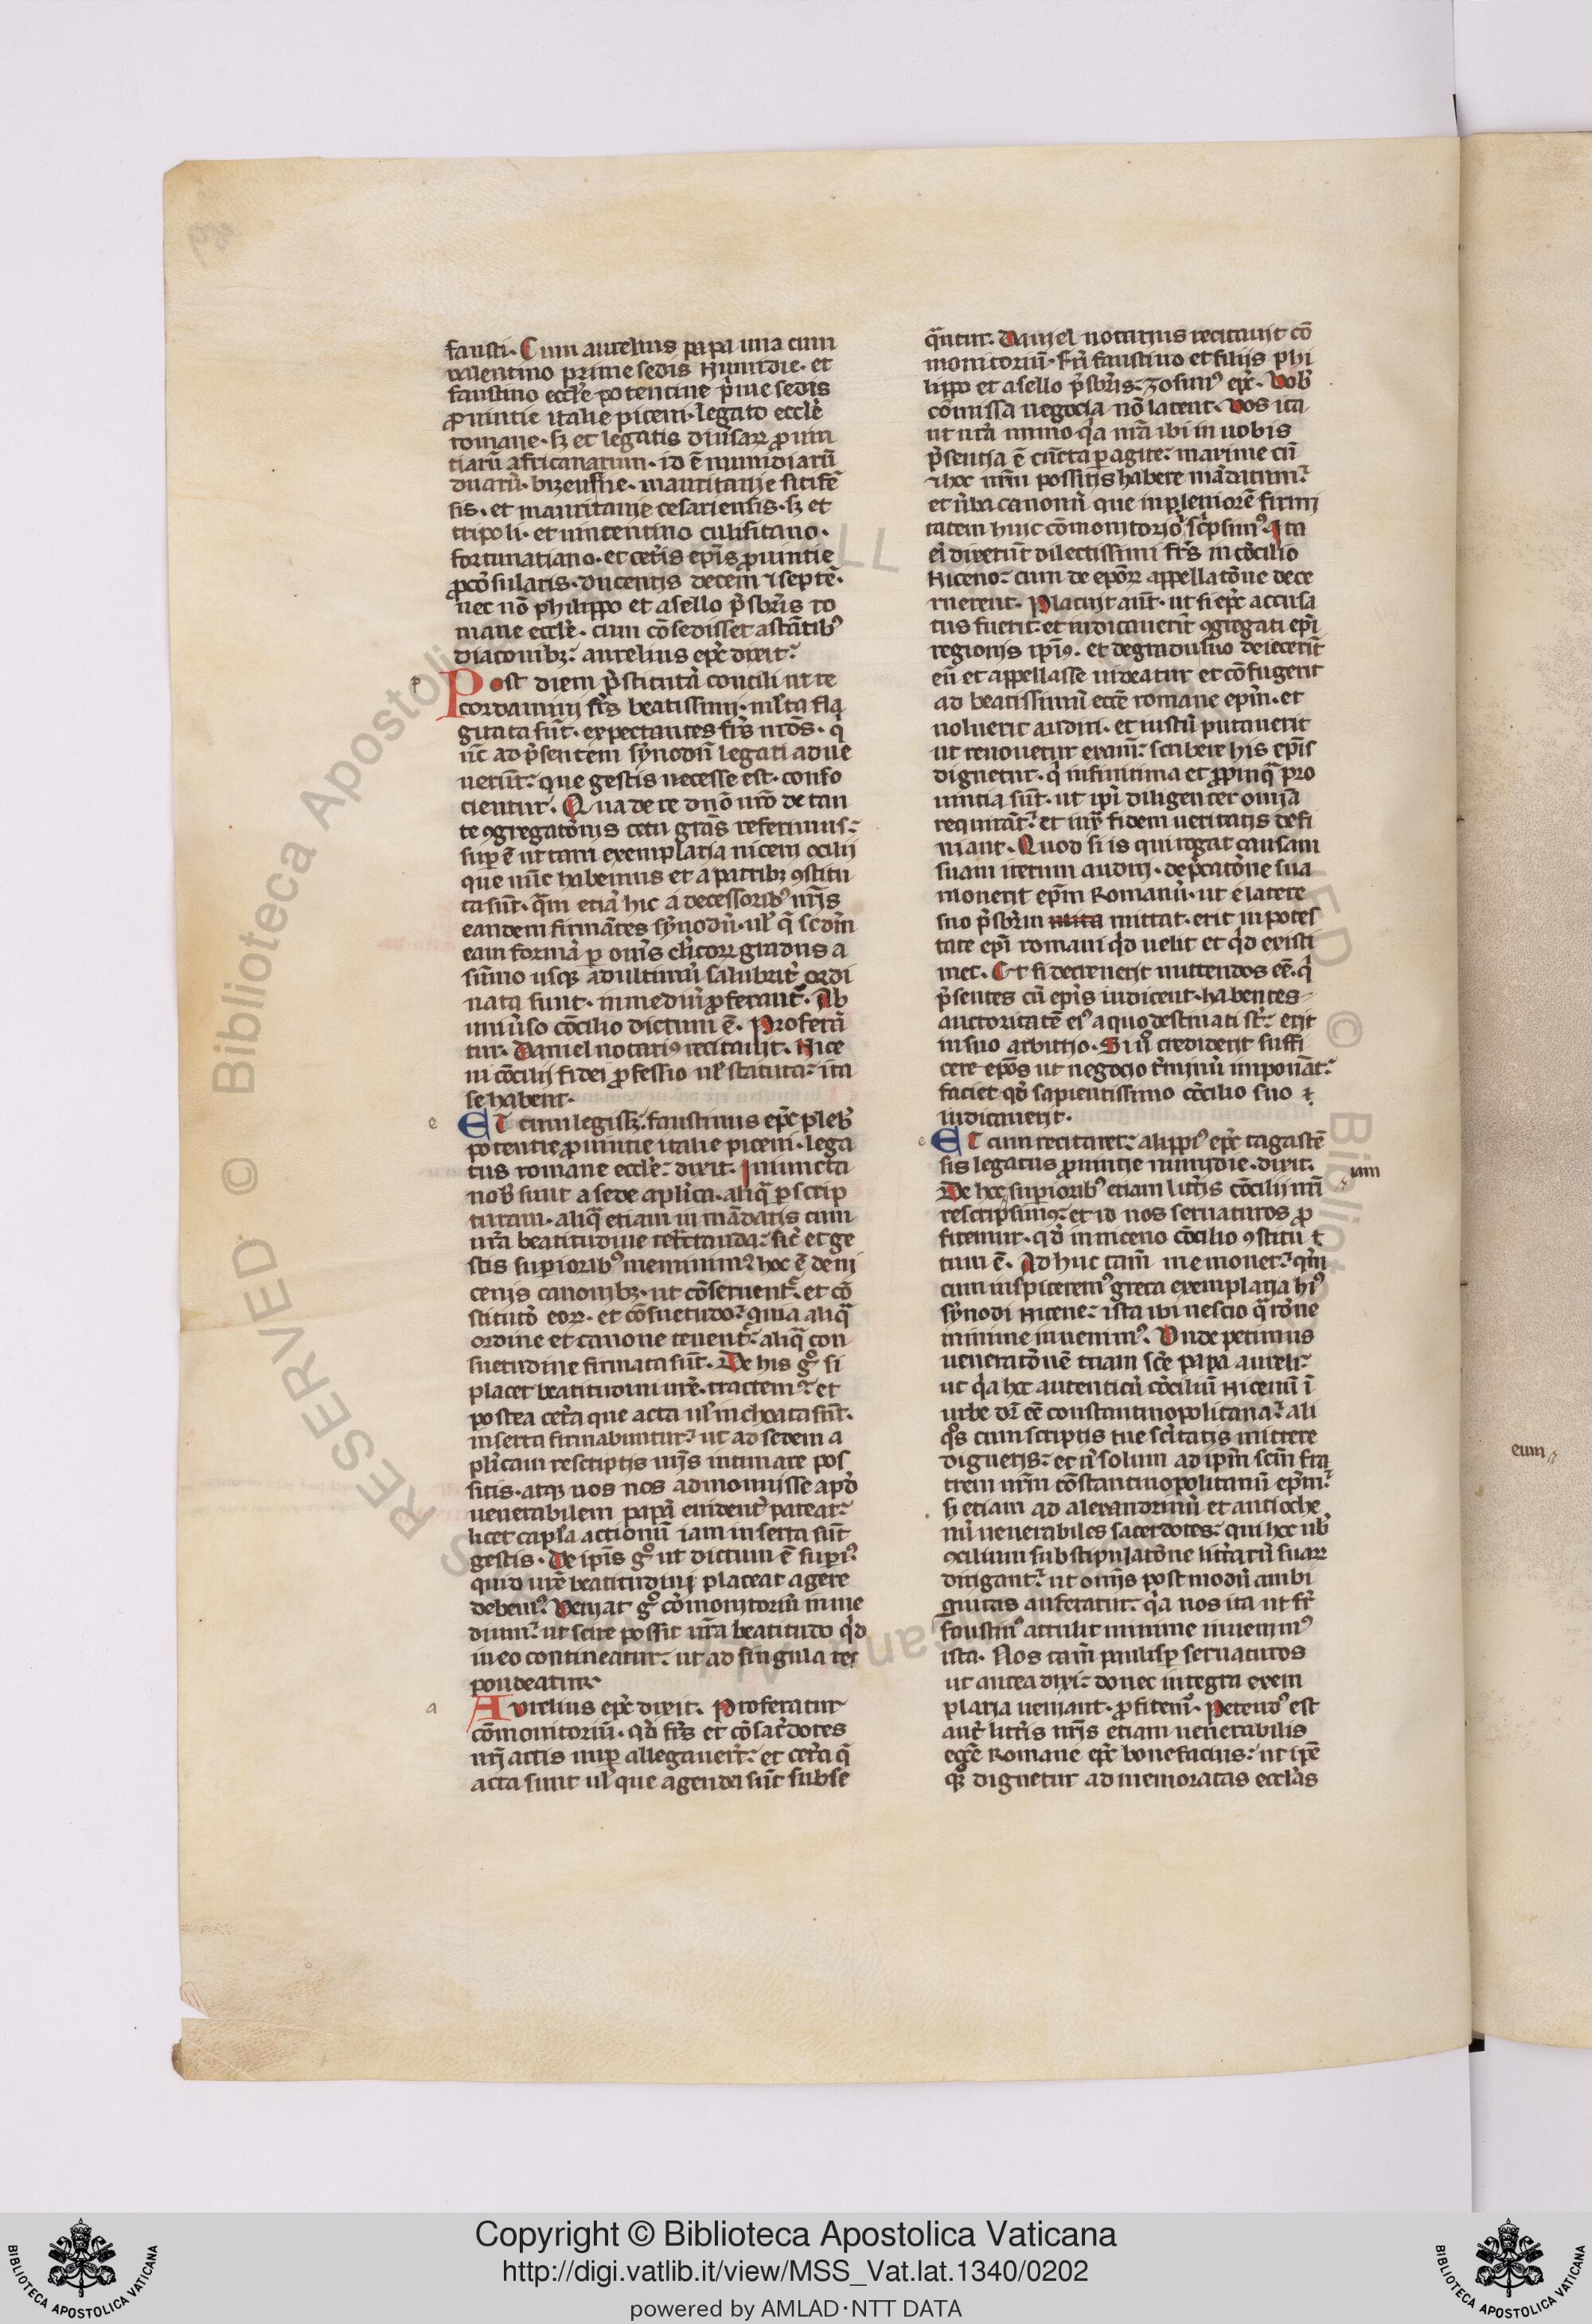 fausti. Cum aurelius papa una cum
valentino prime sedis Numidie. et
faustino eccl'e potentine p͛me sedis
ꝓuintie italie piceni. legato eccl'e
romane. sꝫ et legatis diu͛saꝝ ꝓuin
tiarū africanarum. id ē numidiarū
duarū. bizensine. mauritanie sitifē
sis. et mauritanie cesariensis. sꝫ et
tripoli. et uincentino culusitano.
fortunatiano. et cet͛is ep̄is ꝓuintie
ꝓcōsularis. ducentis decem ⁊ septē.
nec nō philippo et asello p̄sbr̄is ro
mane eccl'e. cum cōsedisset astātibꝰ
diaconibꝫ: aurelius ep̄c dixit:
Post diem p̄stitutā concilii ut re
cordamini fr̄s beatissimi. ml'ta fla
gitata sūt. expectantes fr̄s nr̄os. q͛
nc̄ ad p̄sentem synodū legati adue
nerūt: que gestis necesse est. confo
cientur. Qua de re dn̄o nr̄o de tan
te ꝯgregatōnis cetu gr̄as referimus:
suꝑ ē ut tam exemplaria niceni ꝯcilii
que nūc habemus et a patribꝫ ꝯstitu
ta sūt. q̄m etiā hic a decessoribꝰ nr̄is
eandem firmātes synodū. ul' q̄ sc͛dm
eam formā ꝑ om̄s cl'icoꝝ gradus a
sūmo usqꝫ ad ultimū salubrit͛ ordi
nata sunt. in mediū ꝓferant͛. Ab
uniu͛so cōcilio dictum ē. Proferā
tur. Daniel notariꝰ recitauit. Nice
ni cōcilii fidei ꝓfessio ul' statuta: ita
se habent.
e
ET cum legissꝫ. faustinus ep̄c pleb͛
potentie ꝓuintie italie piceni. lega
tus romane eccl'e: dixit. Iniuncta
nob͛ sunt a sede apl'ica. aliq̄ ꝑ scrip
turam. aliq̄ etiam in mādatis cum
ur̄a beatitudine tractanda: sic͛ et ge
stis suꝑioribꝰ meminimꝰ: hoc ē de ni
cenis canonibꝫ. ut cōseruent͛. et cō
stitutō eoꝝ. et cōsuetudo: quia aliq̄
ordine et canone tenent͛: aliq̄ con
suetudine firmata sūt. De his gͦ si
placet beatitudini ur̄e. tractemꝰ: et
postea cet͛a que acta ul' inchoata sūt.
inserta firmabuntur: ut ad sedem a
pl'icam rescriptis ur̄is intimare pos
sitis. atqꝫ uos nos admonuisse apd͛
uenerabilem papā euident͛ pateat:
licet capsa actionū iam inserta sūt
gestis. De ip̄is gͦ ut dictum ē suꝑiꝰ.
quid ur̄e beatitudini placeat agere
debemꝰ. Veniat gͦ cōmonitoriū in me
dium: ut scire possit ur̄a beatitudo qd͛
in eo contineatur: ut ad singula res
pondeatur.
a
Aurelius ep̄c dixit. Proferatur
cōmonitoriū. qd͛ fr̄s et cōsac͛dotes
nr̄i actis nuꝑ allegauer̄t: et cet͛a q̄
acta sunt ul' que agenda sūt subse
q̄ntur. Daniel notarius recitauit cō
monitoriū. Fr̄i faustino et filiis phi
lippo et asello p̄sbr̄is: zosimꝰ ep̄c. Vob͛
cōmissa negocia nō latent. Vos ita
ut ur̄a immo q͛a nr̄a ibi in uobis
p̄sentia ē cūcta ꝑagite: maxime cū
⁊ hoc nr̄m possitis habere mādatum:
et u͛ba canonū que in pleniorē firmi
tatem huic cōmonitorio sc͛psimꝰ. Ita
ei dixerūt dilectissimi fr̄s in cōcilio
Niceno: cum de ep̄oꝝ appellatōne dece
rnerent. Placuit aūt. ut si ep̄c accusa
tus fuerit: et iudicauerīt ꝯgregati ep̄i
regionis ip̄iꝰ. et de gradu suo deiecerīt
eū et appellasse uideatur et cōfugerit
ad beatissimū ecc̄e romane ep̄m. et
uoluerit audiri. et iustū putauerit
ut renouetur exam̄: scribere his ep̄is
dignetur. q͛ in finitima et ꝓpinq̄ pro
uintia sūt. ut ip̄i diligenter omīa
requirāt: et iux̄ fidem ueritatis defi
niant. Quod si is qui rogat causam
suam iterum audiri. dep̄catōne sua
mouerit ep̄m Romanū. ut e latere
suo p̄sbr̄m muta mittat. erit in potes
tate ep̄i romani qd͛ uelit et qd͛ existi
met. Et si decreuerit mittendos eē. q͛
p̄sentes cū ep̄is iudicent. habentes
auctoritatē eiꝰ a quo destinati st̄: erit
in suo arbitrio. Sin͛ crediderit suffi
cere ep̄os ut negocio t͛minū imponāt:
faciet qd͛ sapientissimo cōcilio suo
iudicauerit.
e
ET cum recitaret: alippiꝰ ep̄c tagastē
sis legatus ꝓuintie numidie. dixit.
iam
De hoc suꝑioribꝰ etiam litt͛is cōcilii nr̄i
rescripsimꝰ: et id nos seruaturos ꝓ
fitemur. qd͛ in niceno cōcilio ꝯstitut
tum ē. Adhuc tam̄ me mouet: qm̄
cum inspiceremꝰ greca exemplaria hiꝰ
synodi Nicene: ista ibi nescio q̄ rōne
minime inuenimꝰ. Unde petimus
ueneratōnē tuam sc̄e papa aureli:
ut q͛a hoc autenticū cōciliū Nicenū ī
urbe dr̄ eē constantinopolitana: ali
q͛s cum scriptis tue sc̄itatis mittere
digneris: et n͛ solum ad ip̄m sc̄m fra
trem nr̄m cōstantinopolitanū ep̄m:
sꝫ etiam ad alexandrinū et antioche
nū uenerabiles sacerdotes: qui hoc nob͛
ꝯcilium sub stipulatōne litt͛arū suaꝝ
dirigant͛: ut om̄is post modū ambi
guitas auferatur: q͛a nos ita ut fr͛
faustinꝰ attulit minime inuenimꝰ
ista. Nos tam̄ paulisꝑ seruaturos
ut antea dixi: donec integra exem
plaria ueniant. ꝓfitemꝰ. Petendꝰ est
aut͛ litt͛is nr̄is etiam uenerabilis
ecc̄e Romane ep̄c bonefacius: ut ip̄e
qꝫ dignetur ad memoratas eccl'as
eum
Copyright © Biblioteca Apostolica Vaticana
http://digi.vatlib.it/view/MSS_Vat.lat.1340/0202
powered by AMLAD·NTT DATA
BIBLIOTECA APOSTOLICA VATICANA
BIBLIOTECA APOSTOLICA VATICANA